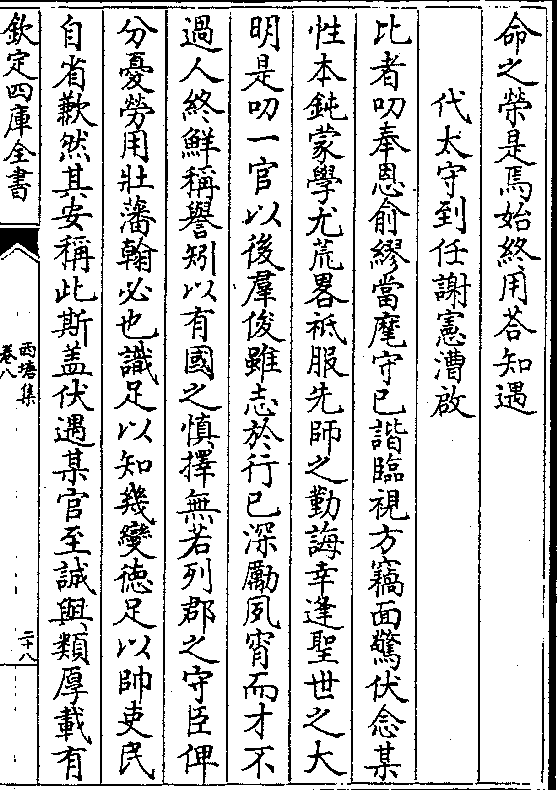 命之榮是焉始終用荅知遇
代太守到任謝憲漕啟
比者叨奉恩俞繆當麾守已諧臨視方竊面驚伏念某
性本鈍蒙學尤荒畧祇服先師之勤誨幸逢聖世之大
明是叨一官以後羣俊雖志於行已深勵夙宵而才不
過人終鮮稱譽矧以有國之慎擇無若列郡之守臣俾
分憂勞用壯藩翰必也識足以知幾變德足以帥吏民
自省歉然其安稱此斯盖伏遇某官至誠與類厚載有
欽定四庫全書
西塘集
卷八
二十八